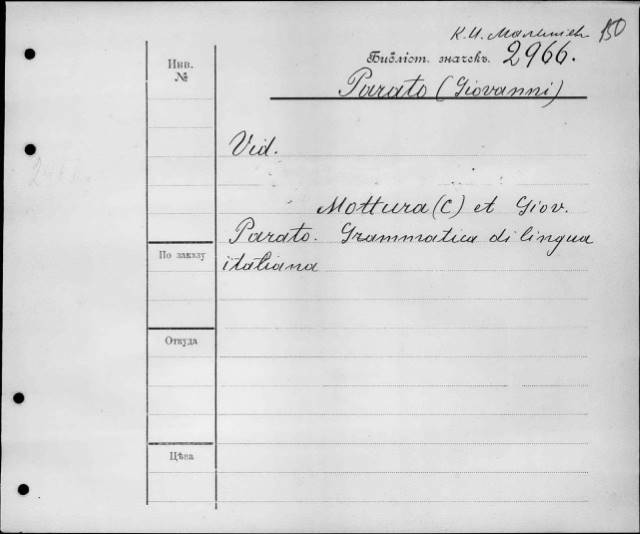 К. И. 150
Инв. №
Библіот. значекъ. 2966.
Parato (Giovanni)
Vid.
Mottura (C) et Giov.
Parato. Grammatica di lingua
italiana
По заказу
Откуда
Цѣна